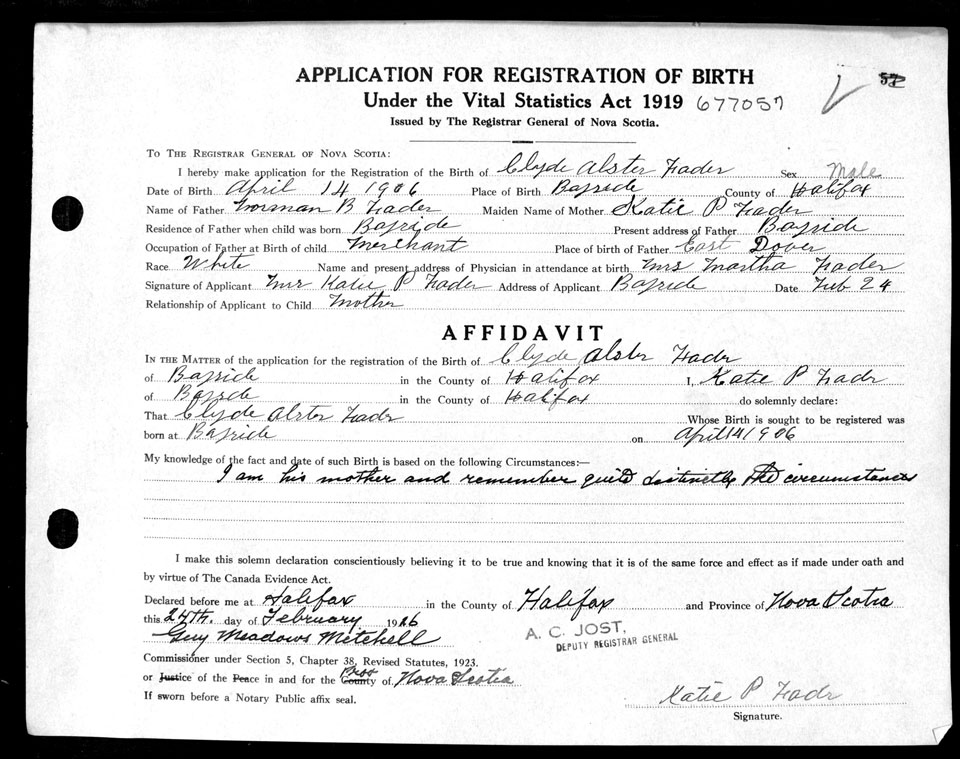 APPLICATION FOR REGISTRATION OF BIRTH
57
Under the Vital Statistics Act 1919 677057
Issued by The Registrar General of Nova Scotia.
TO THE REGISTRAR GENERAL OF NOVA SCOTIA:
I hereby make application for the Registration of the Birth of Clyde Alster Fader Sex Male
Date of Birth April 14 1906 Place of Birth Bayside County of Halifax
Name of Father Norman B Fader Maiden Name of Mother Katie P Fader
Residence of Father when child was born Bayside Present address of Father Bayside
Occupation of Father at Birth of child Merchant Place of birth of Father East Dover
Race White Name and present address of Physician in attendance at birth Mrs Martha Fader
Signature of Applicant Mrs Katie P Fader Address of Applicant Bayside Date Feb 24
Relationship of Applicant to Child Mother
AFFIDAVIT
IN THE MATTER of the application for the registration of the Birth of Clyde Alster Fader
of Bayside in the County of Halifax I, Katie P Fader
of Bayside in the County of Halifax do solemnly declare:
That Clyde Alster Fader Whose Birth is sought to be registered was
born at Bayside on April 14 1906
My knowledge of the fact and date of such Birth is based on the following Circumstances:—
I am his mother and remember quite distinctly the circumstances
I make this solemn declaration conscientiously believing it to be true and knowing that it is of the same force and effect as if made under oath and
by virtue of The Canada Evidence Act.
Declared before me at Halifax in the County of Halifax and Province of Nova Scotia
this 24th. day of February 1926
Guy Meadows Mitchell
A. C. JOST,
DEPUTY REGISTRAR GENERAL
Commissioner under Section 5, Chapter 38, Revised Statutes, 1923.
or Justice of the Peace in and for the County Prov of Nova Scotia
If sworn before a Notary Public affix seal.
Katie P Fader
Signature.